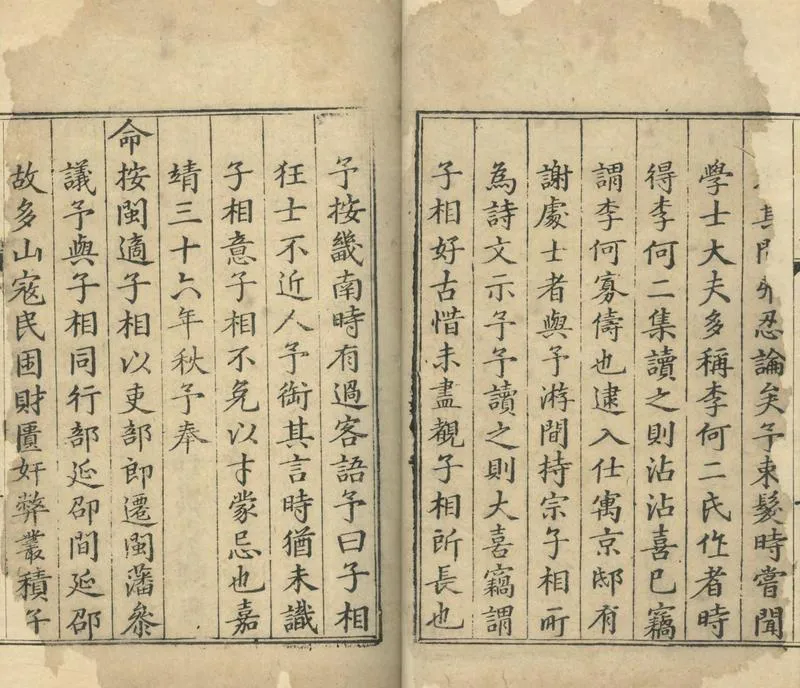 其忍論矣予束髮時嘗聞
學士大夫多稱李何二氏作者時
得李何二集讀之則沾沾喜已竊
謂李何寡儔也逮入仕寓京邸有
謝處士者與予游間持宗子相所
為詩文示予予讀之則大喜竊謂
子相好古惜未盡觀子相所長也
予按畿南時有過客語予曰子相
狂士不近人予銜其言時猶未識
子相意子相不免以才蒙忌也嘉
靖三十六年秋予奉
命按閩適子相以吏部郎遷閩藩叅
議予與子相同行部延邵間延邵
故多山寇民困財匱奸弊叢積予